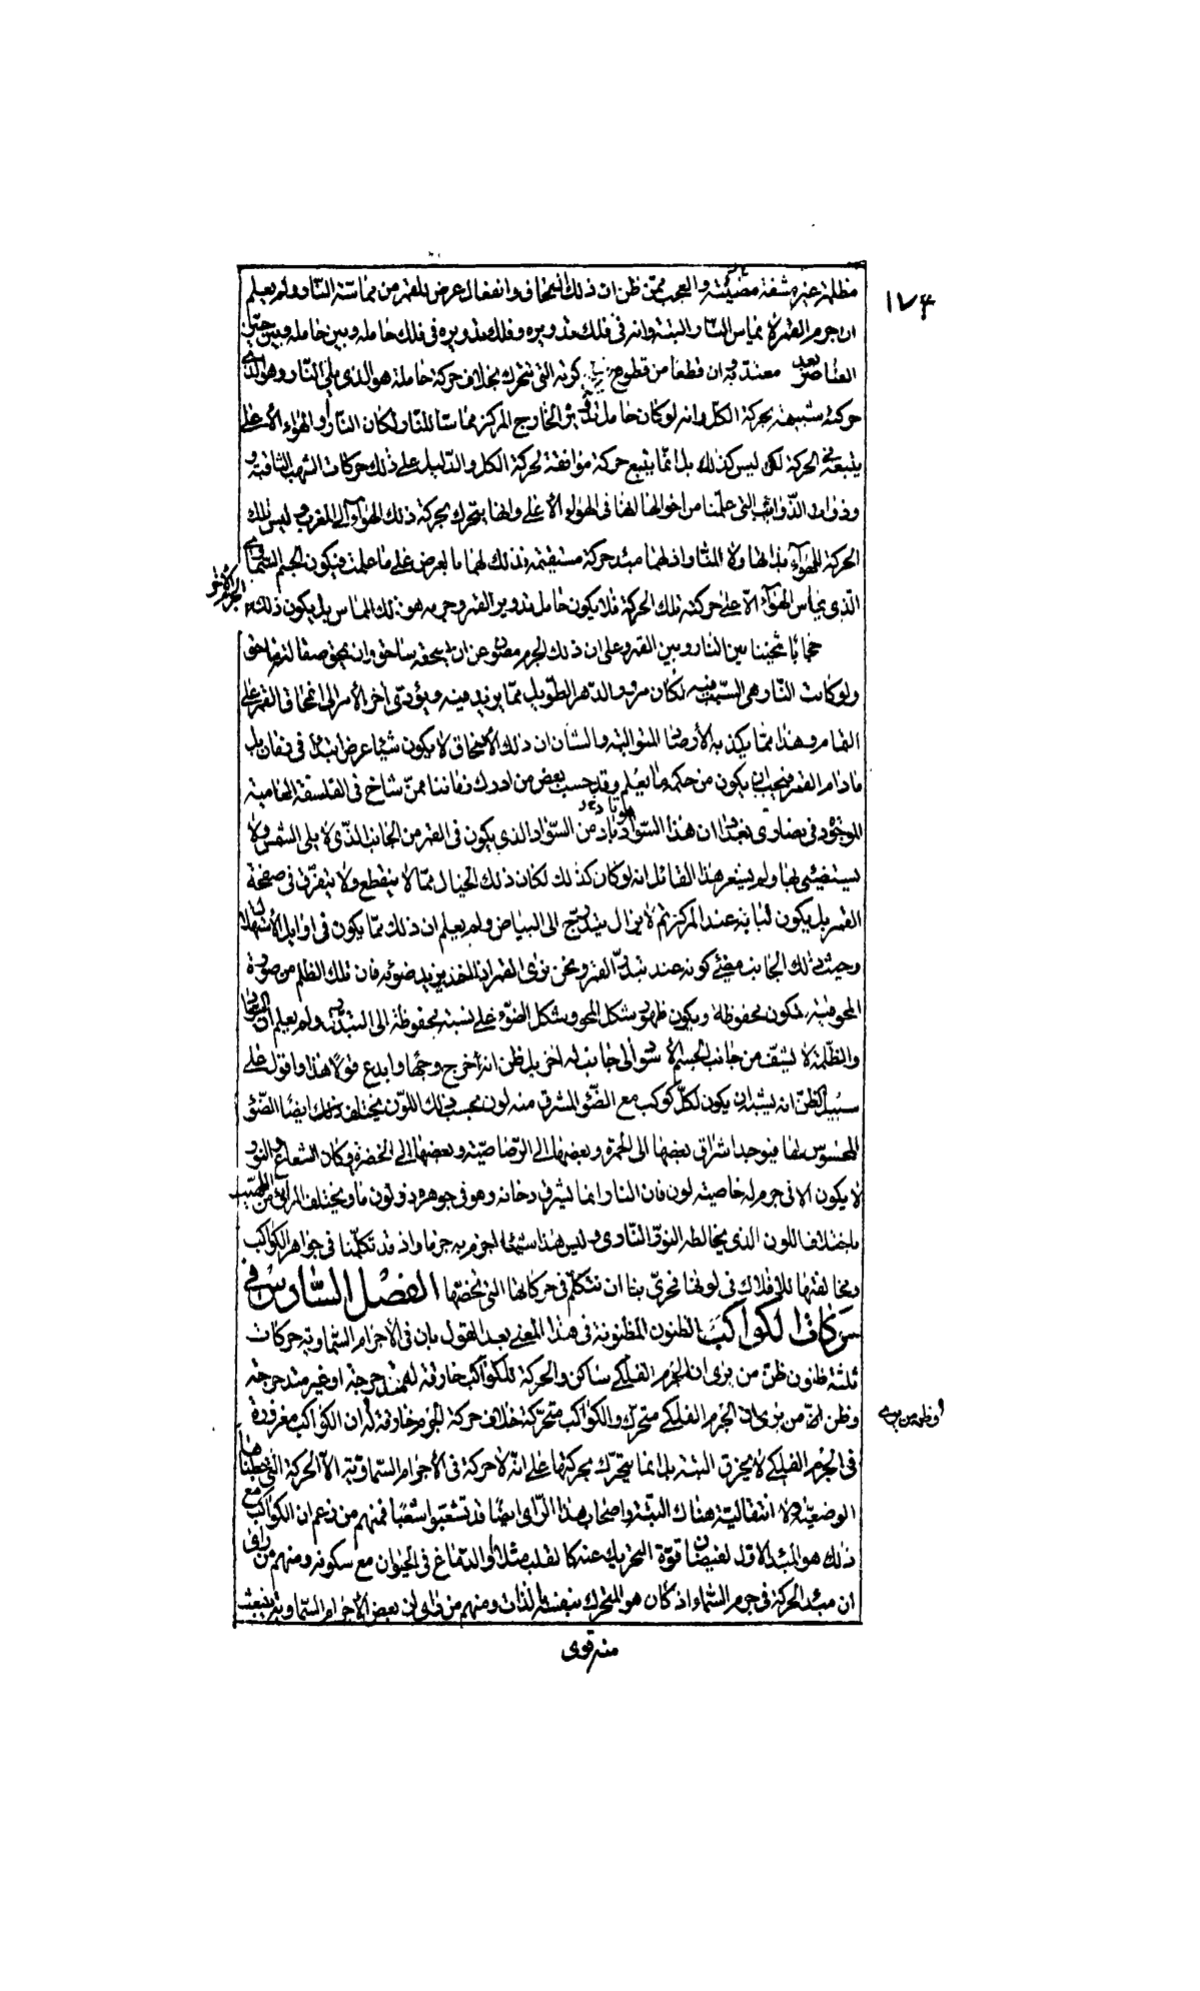 ١٧٤
مظلمة غير مشفة مضيئة والعجب ممن ظن ان ذلك انمحاق وانفعال عرض للقمر من مماسة النار ولم يعلم
ان جرم القمر لا يماس النار البتة وانه في فلك تدويره وفلك تدويره في فلك حامله وبين حامله وبين حيز
العناصر بعد معتد به وان قطعا من كرته التي تتحرك بخلاف حركة حاملة هو الذي يلي النار وهو الذي
حركته شبيهة بحركة الكل وانه لو كان حامل تدويره الخارج المركز مماسا للنار لكان النار والهواء الأعلى
يتبعه في الحركة لكن ليس كذلك بل انما يتبع حركة موافقة لحركة الكل والدليل على ذلك حركات الشهب الثاقبة و
وذوات الذوائب التي علمنا من احوالها انها في الهواء الأعلى وانها يتحرك بحركة ذلك الهواء الى المغرب وليس تلك
الحركة للهواء بذاتها ولا للنار اذ لهما مبدء حركة مستقيمة فذلك لهما ما بعرض على ما علمت فيكون الجسم السماوي
الذي يماس الهواء الأعلى حركته تلك الحركة فلا يكون حامل تدوير القمر وجرمه هو ذلك المماس بل يكون ذلك
حجابا ثخينا بين النار وبين القمر وعلى ان ذلك الجرم مصون عن ان يسحقه ساحق وان يمحق صفالته ماحق
ولو كانت النار هي السبب فيه لكان مرور الدهر الطويل مما يزيد فيه ويؤدي آخر الأمر الى انمحاق القمر على
التمام وهذا مما يكذبه الأرصاد المتوالية والشأن ان ذلك الانمحاق لا يكون شيئا عرض ابتداء في زمان بل
ما دام القمر فيجب ان يكون من حكمه ما يعلم وقد حسب بعض من ادرك زماننا ممن شاخ في الفلسفة العامية
الموجود في نصارى بغداد ان هذا السواد تاد من السواد الذي يكون في القمر من الجانب الذي لا يلي الشمس ولا
يستضيئ بها ولم يشعر هذا القائل انه لو كان كذلك لكان ذلك الخيال مما لا ينقطع ولا يتفرق في صفحة
القمر بل يكون ثباته عند المركز ثم لا يزال يتدرج الى البياض ولم يعلم ان ذلك مما يكون في اوايل الاستهلال
وحيث ذلك الجانب مضيء كونه عند تبدر القمر ونحن نرى القمر اذا اخذ يزيد ضوئه فان تلك الظلم من صورة
المحو فيه يكون محفوظة ويكون ظهور شكل المحو وشكل الضوء على نسبة محفوظة الى التبدر ولم يعلم ان السواد
والظلمة لا يشف من جانب الجسم الى جانب له اخر بل ظن انه اخرج وجها وابدع قولا هذا واقول على
سبيل الظن انه يشبه ان يكون لكل كوكب مع الضوء المشرق منه لون بحسب ذلك اللون يختلف ذلك ايضا الضوء
المحسوس لها فيوجد اشراق بعضها الى الحمرة وبعضها الى الرصاصية وبعضها الى الخضرة وكان الشعاع والنور
لا يكون الا في جرم له خاصية لون فان النار انما يشرق دخانه وهو في جوهره ذو لون ما ويختلف المرئي من اللهيب
باختلاف اللون الذي يخالطه النور الناري وليس هذا شيئا اجزم به جزما واذ قد تكلمنا في جواهر الكواكب
ومخالفتها للافلاك في لونها فحري بنا ان نتكلم في حركاتها التي تخصها الفصل السادس في
حركات الكواكب الظنون المظنونة في هذا المعنى بعد القول بان في الأجرام السماوية حركات
ثلثة ظنون ظن من يرى ان الجرم الفلكي ساكن والحركة للكواكب خارقة له متدحرجة او غير متدحرجة
وظن من يرى ان الجرم الفلكي متحرك والكواكب متحركة خلاف حركة الجرم خارقة له ان الكواكب مغروزة
في الجرم الفلكي لا يخرق البتة بل انما يتحرك بحركتها على انه لا حركة في الأجرام السماوية الا الحركة التي جعلناها
الوضعية ولا انتقالية هناك البتة واصحاب هذا الرأي ايضا قد تشعبوا شعبا فمنهم من زعم ان الكواكب مع
ذلك هو المبدء الاول لفيضان قوة التحريك عنه كالقلب مثلا او الدماغ في الحيوان مع سكونه ومنهم من راى
ان مبدء الحركة في جرم السماء اذ كان هو المتحرك بنفسه بالذات ومنهم من راى ان بعض الاجرام السماوية ينبعث
او ظن من يرى
منه قوى